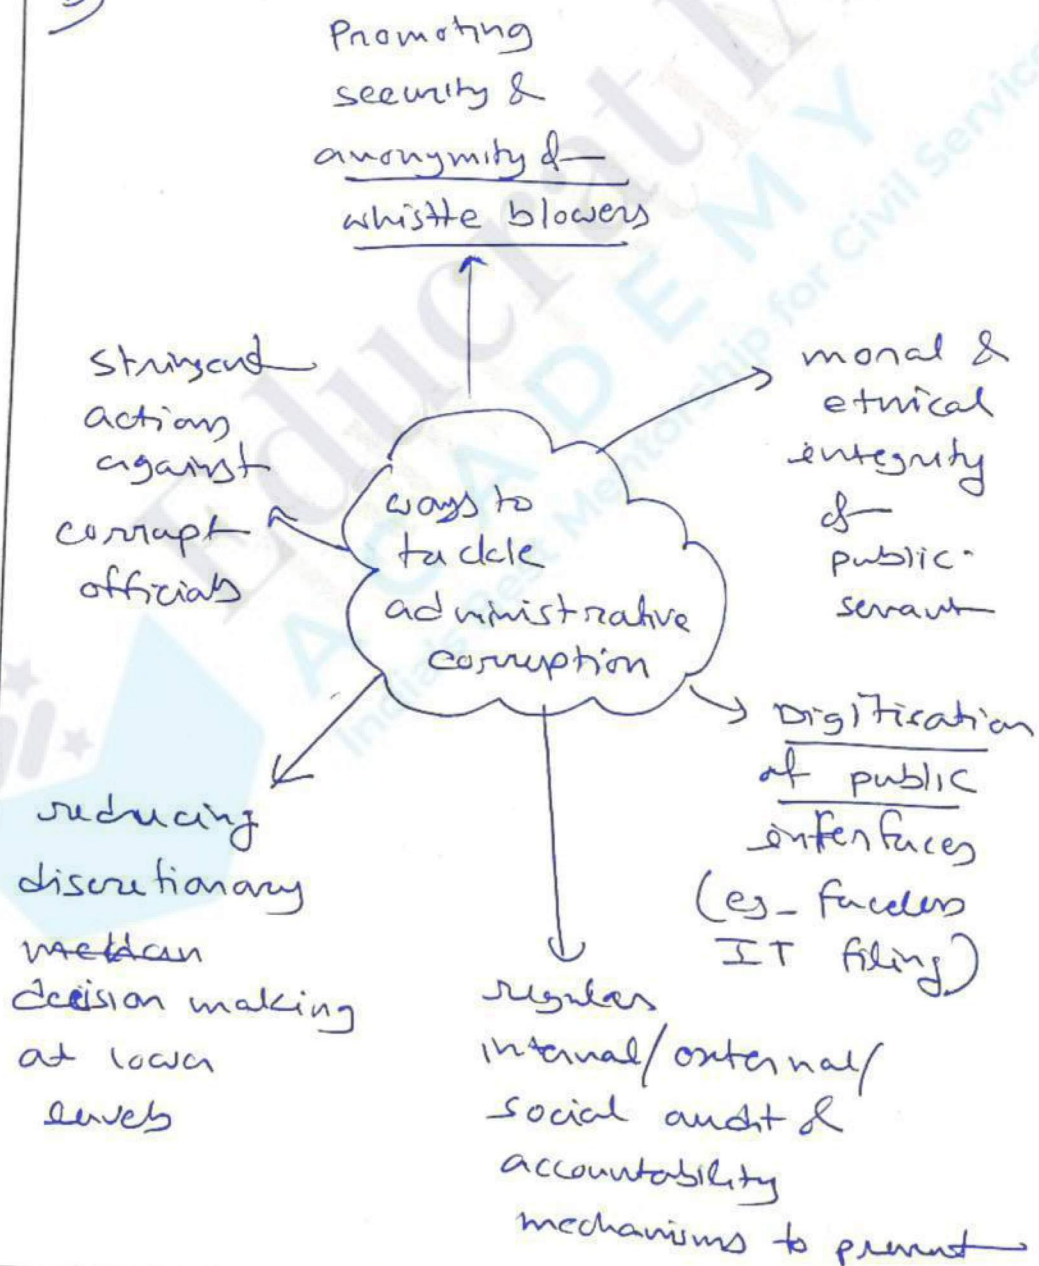 Promoting
security &
anonymity of
whistle blowers
stringent
actions
against
corrupt
officials
moral &
ethical
integrity
of
public
servant
ways to
tackle
administrative
corruption
Digitisation
of public
interfaces
(eg- faceless
IT filing)
reducing
discretionary
decision making
at lower
levels
regular
internal/external/
social audit &
accountability
mechanisms to prevent
Educrat
ACADEMY
India's Best Mentorship for Civil Service